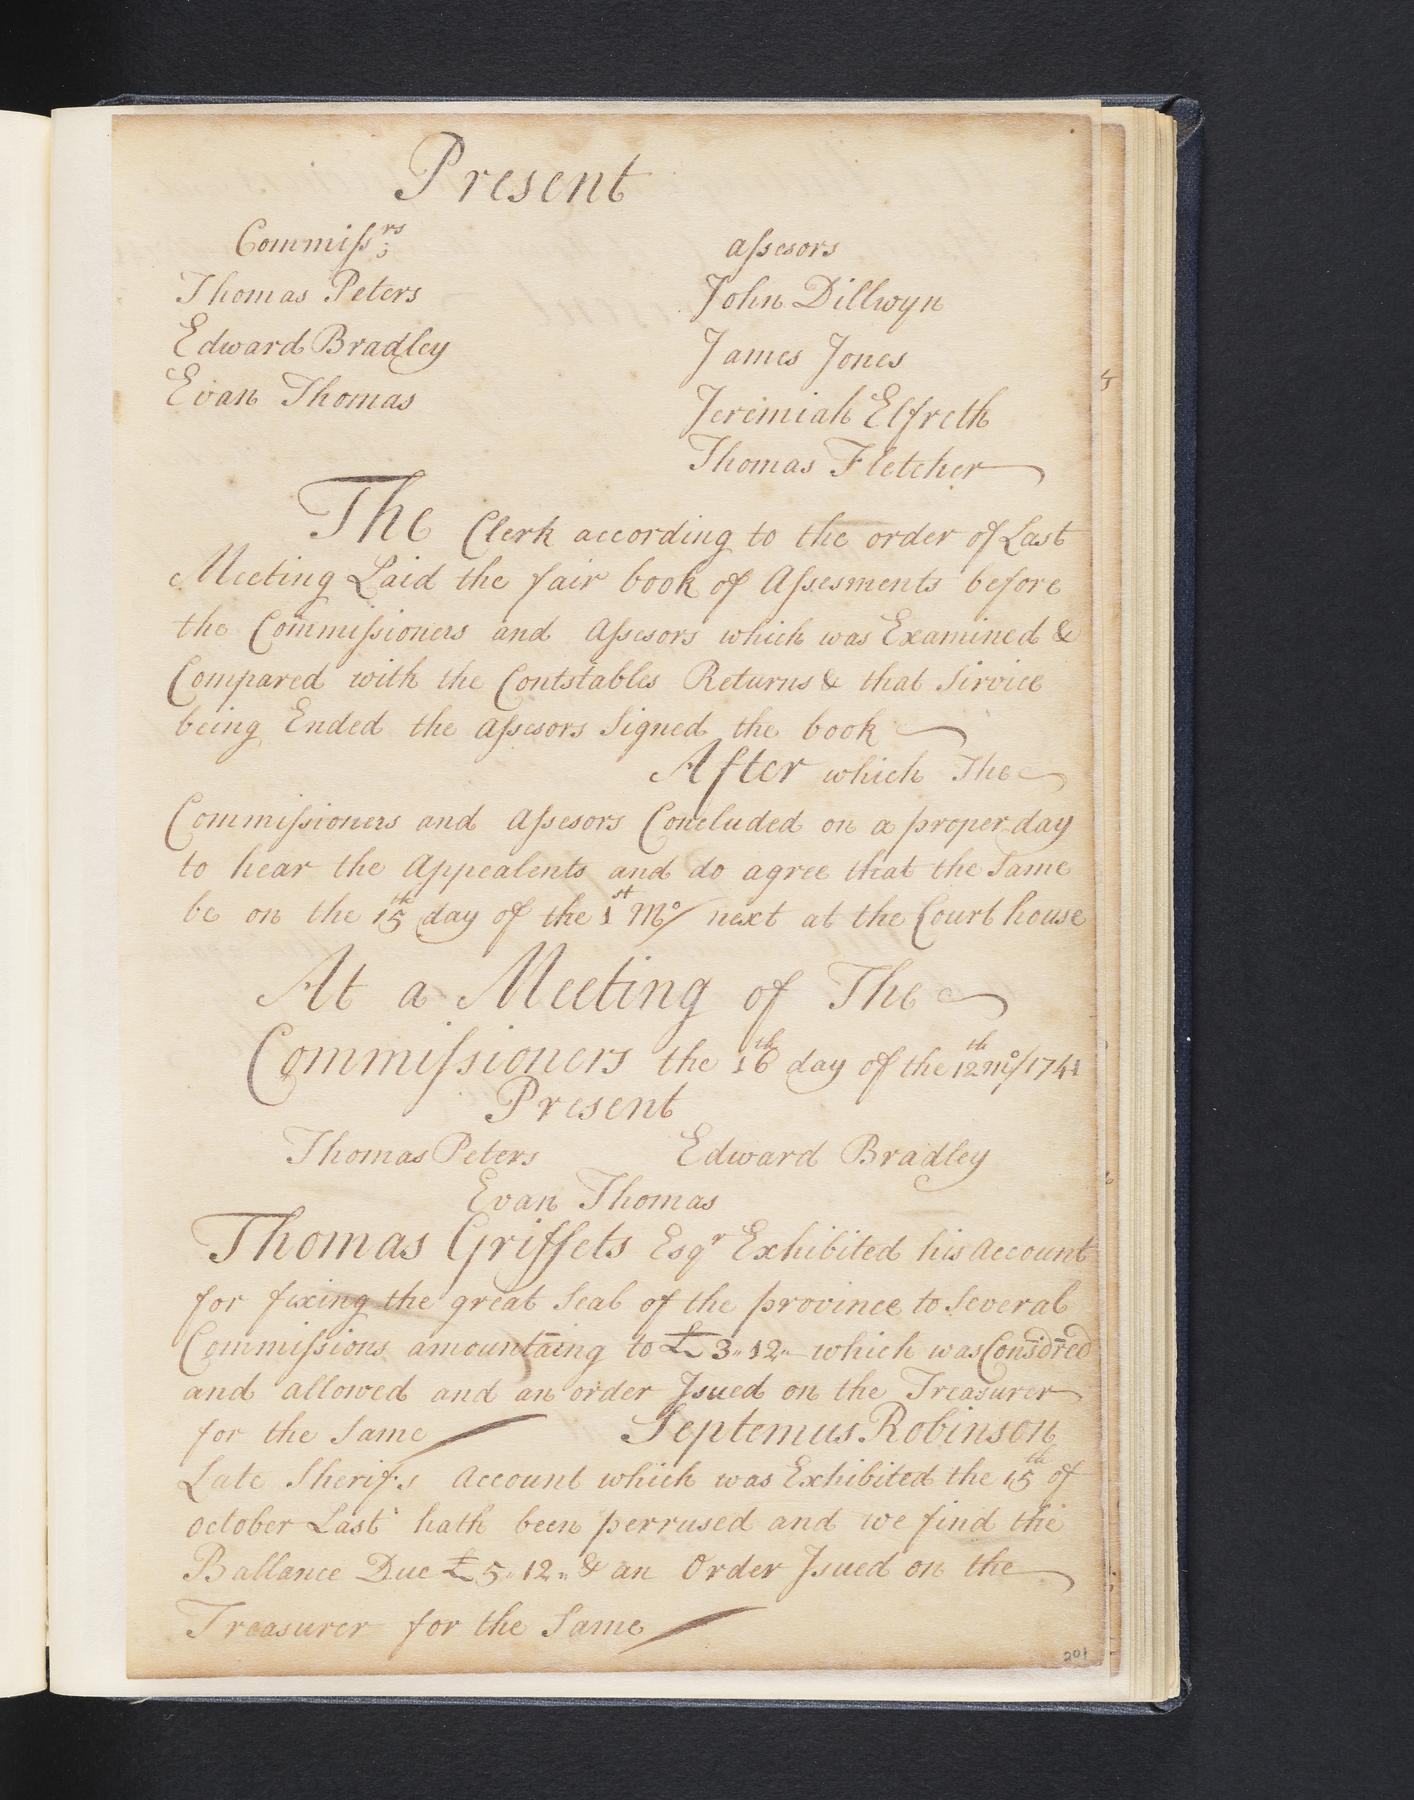 Present
Commissrs; assesors
Thomas Peters John Dillwyn
Edward Bradley James Jones
Evan Thomas Jeremiah Elfreth
Thomas Fletcher
The Clerk according to the order of Last
Meeting Laid the fair book of Assesments before
the Commissioners and Assesors which was Examined &
Compared with the Contstables Returns & that Sirvice
being Ended the assesors Signed the book
After which The
Commissioners and Assesors Concluded on a proper day
to hear the Appealents and do agree that the Same
be on the 15th day of the 1st Mo/ next at the Court house
At a Meeting of The
Commissioners the 16th day of the 12th mo/1741
Present
Thomas Peters Edward Bradley
Evan Thomas
Thomas Griffets Esqr Exhibited his Account
for fixing the great Seal of the province to Several
Commissions amountaing to £3"12" which was Considred
and allowed and an order Isued on the Treasurer
for the Same Septemus Robinson
Late Sherifs Account which was Exhibited the 15th of
october Last hath been perrused and we find the
Ballance Due £5"12" & an Order Isued on the
Treasurer for the Same
201